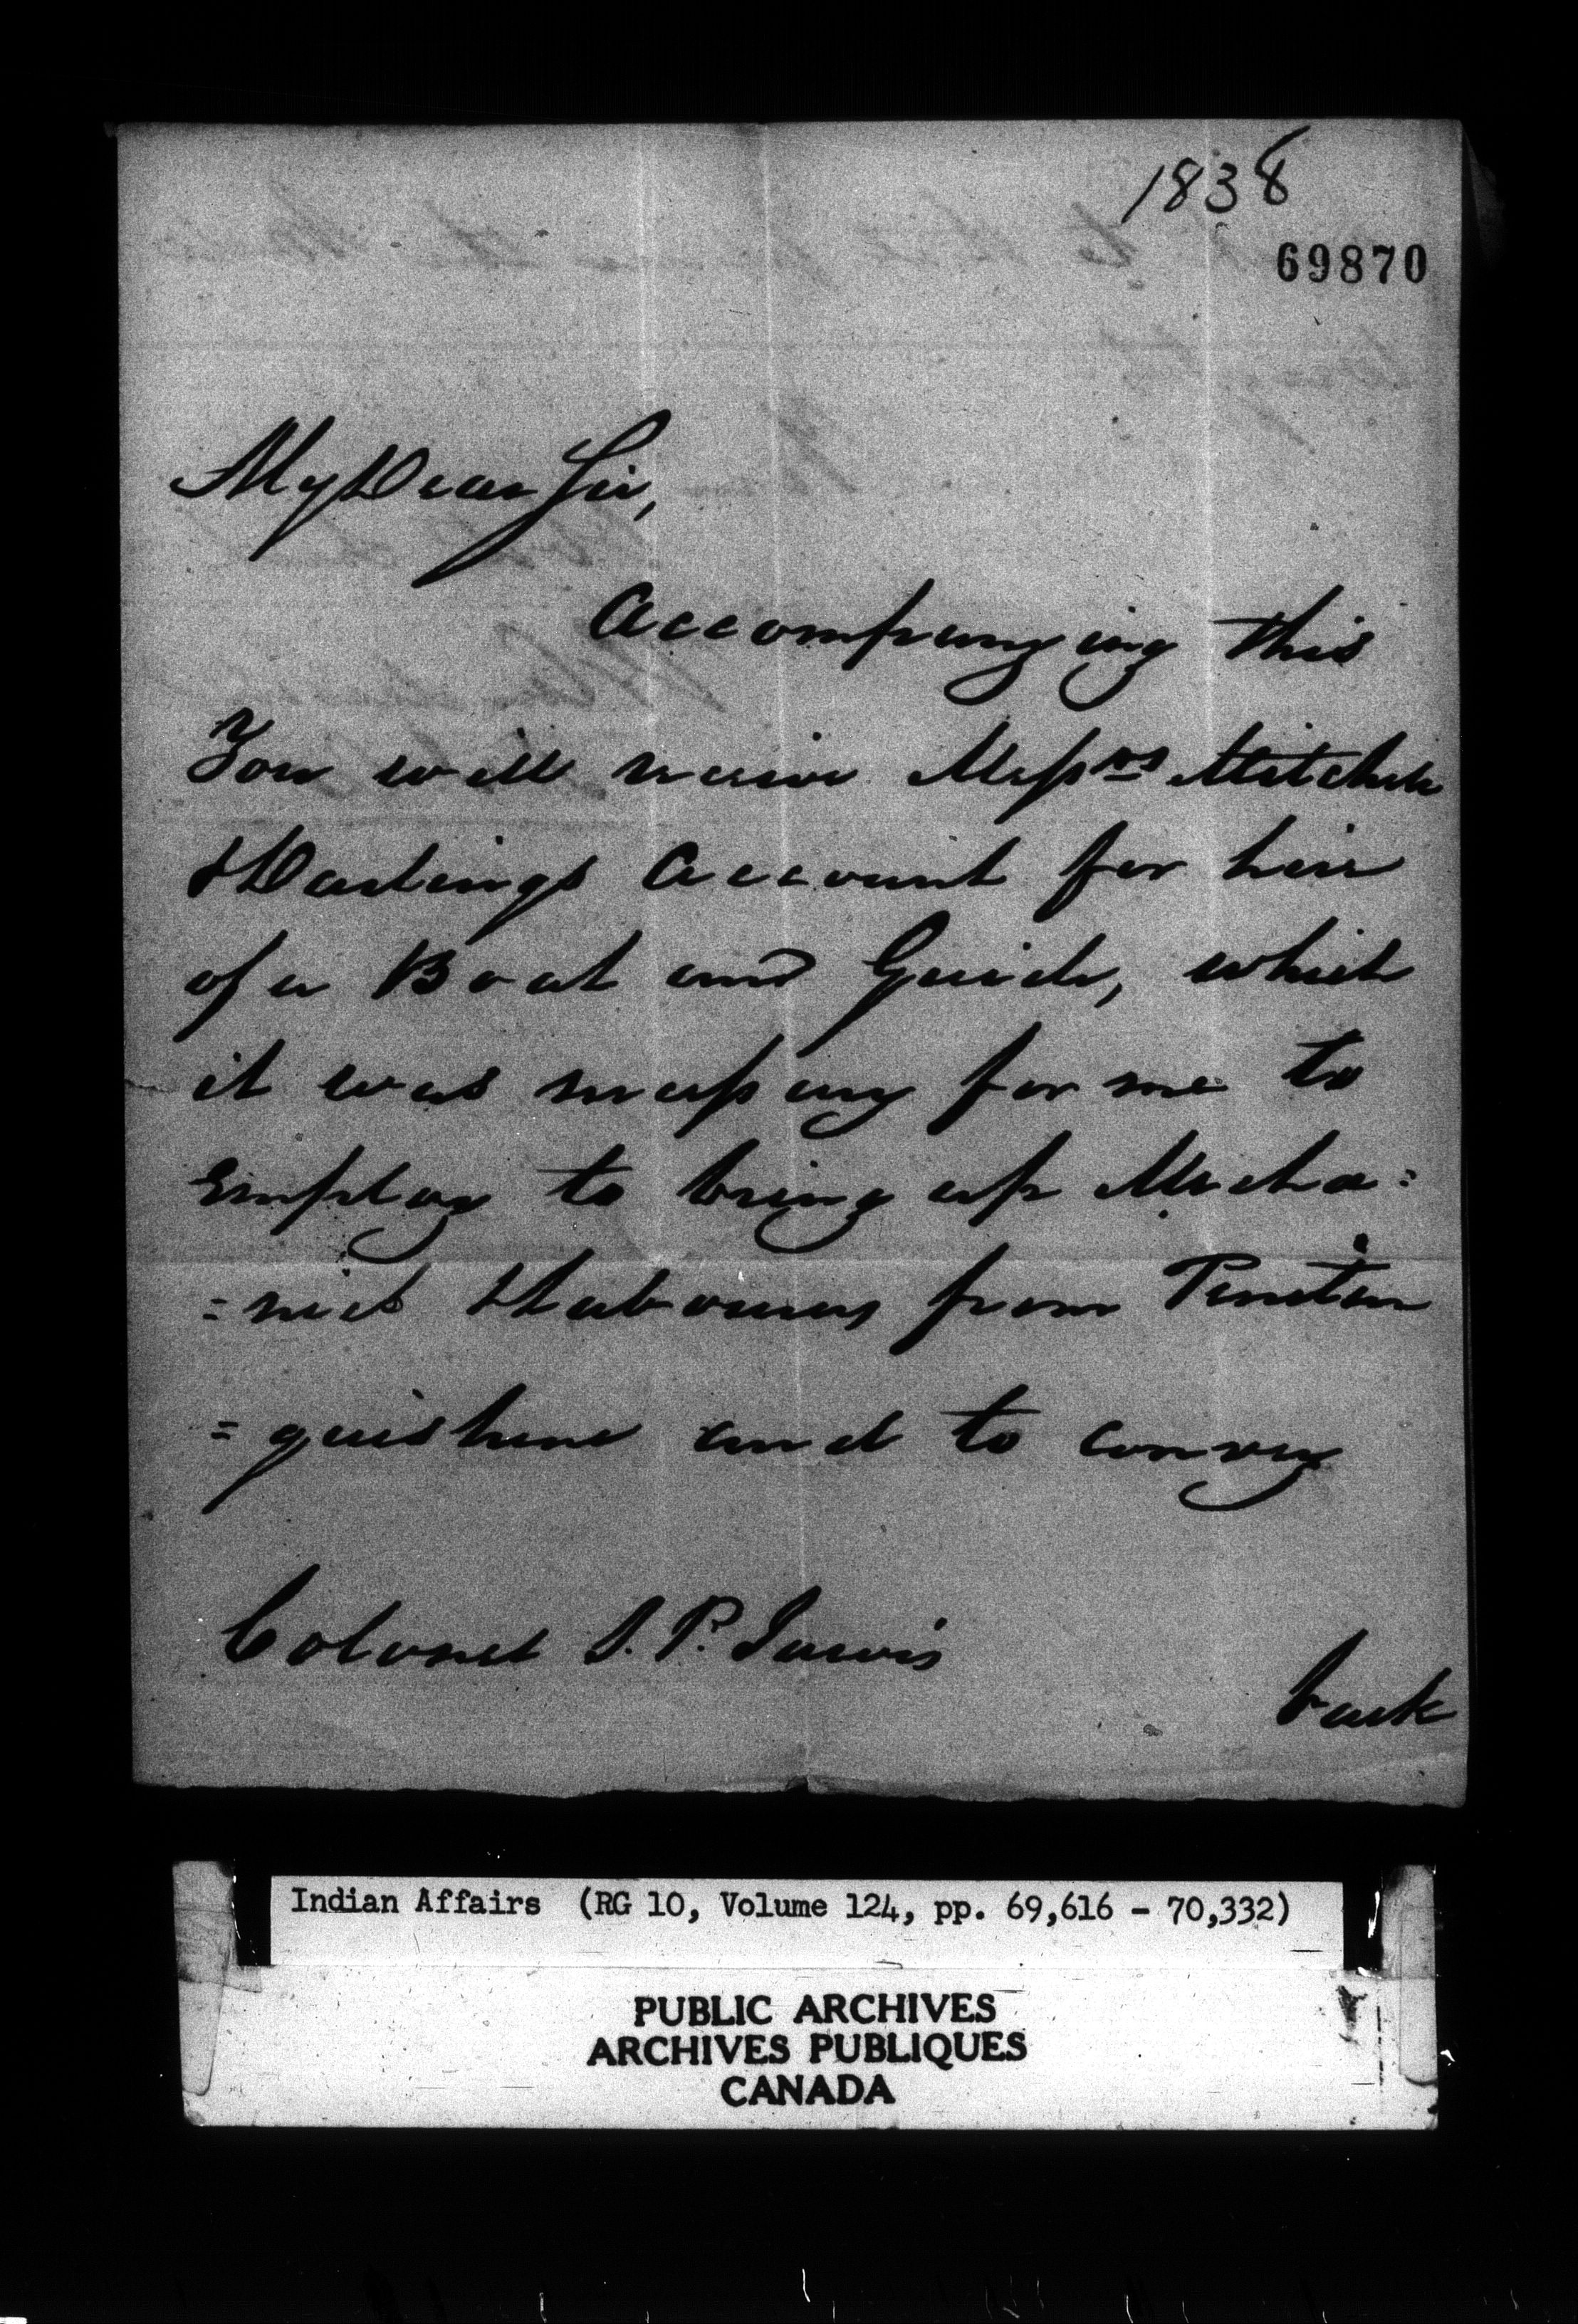 1838
69870
My Dear Sir,
Accompanying this
You will receive Messrs Mitchell
& Darlings Account for hire
of a Boat and Guide, which
it was necessary for me to
Employ to bring up Mecha=
=nics & Labourers from Penetan
=guishene and to convey
Colonel S. P. Jarvis
back
Indian Affairs (RG 10, Volume 124, pp. 69,616 - 70,332)
PUBLIC ARCHIVES
ARCHIVES PUBLIQUES
CANADA